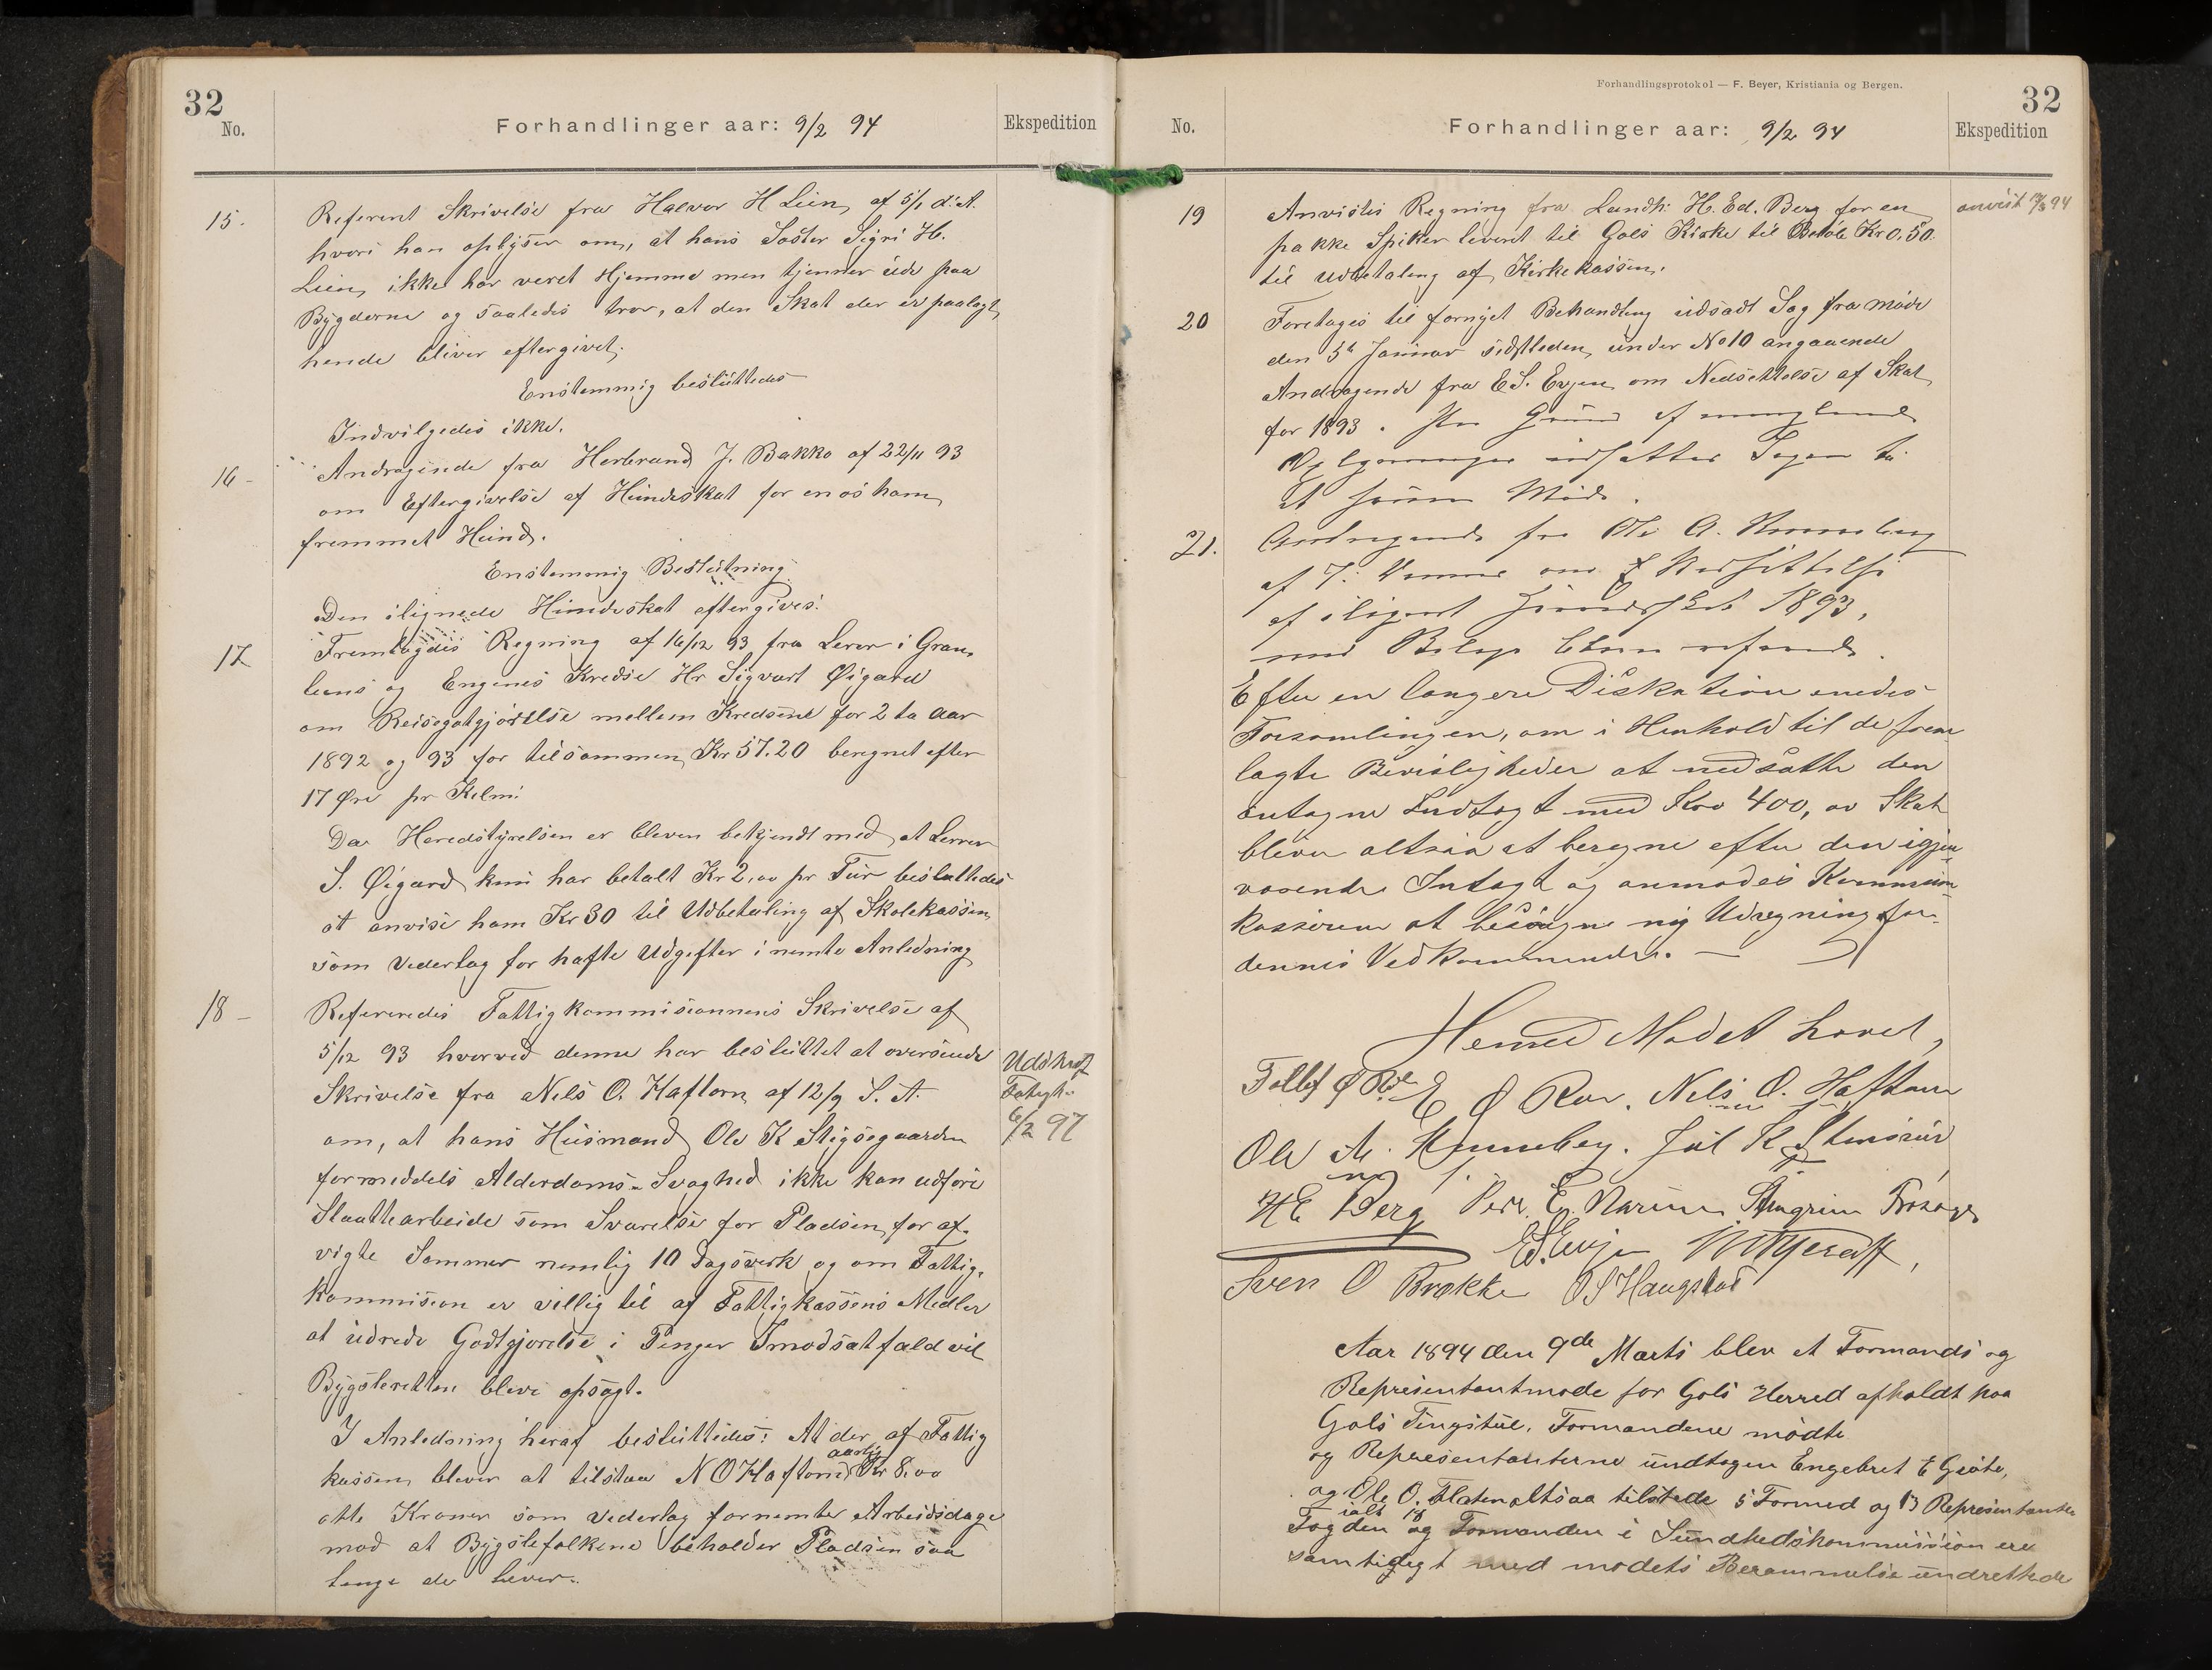 32
No.
Forhandlinger aar: 9/2 94
Ekspedition
15.
Referent Skrivelse fra Halvor H Lien, af 5/1 d: A.
hvori han oplyser om, at hans Søster Sigri H.
Lien, ikke har veret Hjemme men tjenner ude paa
Bygderne og saaledes tror, at den Skat der er paalagt
hende bliver eftergivet.
Enstemmig besluttedes
Indvilgedes ikke.
16 -
Andragende fra Herbrand J. Bakko af 22/11 93
om Eftergivelse af Hundeskat for en os ham
fremmet Hund.
Enstemmig Beslutning
Den ilignede Hundeskat eftergives.
17
Fremlagdes Regning af 16/12 93 fra Lerer i Gran,
liens og Engenes Kredse Hr Sigvart Øigard
om Reisegotgjørelse mellem Kredsene for 2 to Aar
1892 og 93 for tilsammen Kr 57.20 beregnet efter
17 Øre pr Kilm:
Da Heredstyrelsen er bleven bekjendt med, at Lerrer
S. Øigard kun har betalt Kr 2,00 pr Tur besluttedes
at anvise ham Kr 30 til Udbetaling af Skolekassen
som Vederlag for hafte Udgifter i nemte Anledning
18 -
Refereredes Fattigkommisionnens Skrivelse af
5/12 93 hvorved denne har besluttet at oversende
Skrivelse fra Nels O. Haftorn af 12/9 S. A.
om, at hans Husmand Ole K Stigsegaarden
formeddels Alderdoms-Svaghed ikke kan udføre
Slaattearbeide som Svarelse for Pladsen for af-
vigte Sommer nemlig 10 Dagsverk og om Fattig-
kommision er villig til af Fattigkassens Medler
at udrede Godtgjørelse i Penger Imodsatfald vil
Bygsleretten blive opsagt.
I Anledning heraf besluttedes: At der af Fattig
kassen bliver at tilstaa N O Haftorn aarlig Kr 8,00
otte Kroner som Vederlag for nemte Arbeidsdage
mod at Bygslefolkene beholder Pladsen saa
lenge de lever.
Udskrift
6/2 97
Forhandlingsprotokol — F. Beyer, Kristiania og Bergen.
32
No.
Forhandlinger aar: 9/2 94
Ekspedition
19
Anvistes Regning fra Landh: H. Ed. Berg for en
pakke Spiker leveret til Gols Kirke til Beløb Kr 0.50.
til Udbetaling af Kirkekassen.
anvist 94
20
Foretages til fornyet Behandling udsadt Sag fra Møde
den 5te Januar sidstleden, under No 10 angaaende
Andragende fra E S. Evjen om Nedsettelse af Skat
for 1893. Paa Grund af manglende
Oplysninger udsattes Sagen til
et senere Møde.
21.
Andragende fra Ole A. Hunneberg
af om Nedsættelse
af ilignet 1893,
med Bilag
Efter en længere Diskution enedes
Forsamlingen, om i Henhold til de frem-
lagte Bevisligheder at nedsætte den
antagne Indtægt med Kro 400, av Skat
bliver altsaa at beregne efter den igjen-
værende Intægt og anmodes Kommune-
kasseren at besørge ny Udregning for
dennes Vedkommende. —
Hermed Mødet hævet,
Tollef Ø E Ø Nels O. Haftorn
Ole A. Hunneberg. Jul K. Stensrud
H E Berg Peder E. Steingrim
E.S. Evjen
Sven O Brakke O S Haugstad
Aar 1894 den 9de Marts blev et Formands og
Representantmøde for Gols Herred afholdt paa
Gols Tingstue. Formandene mødte
og Representanterne undtagen Engebret E Grøte,
og Ole O. Flaten altsaa tilstede 5 Formed og 13 Representanter
ialt 18
Fogden og Formanden i Sundhedskommission ere
samtidigt med mødets Berammelse undrettede